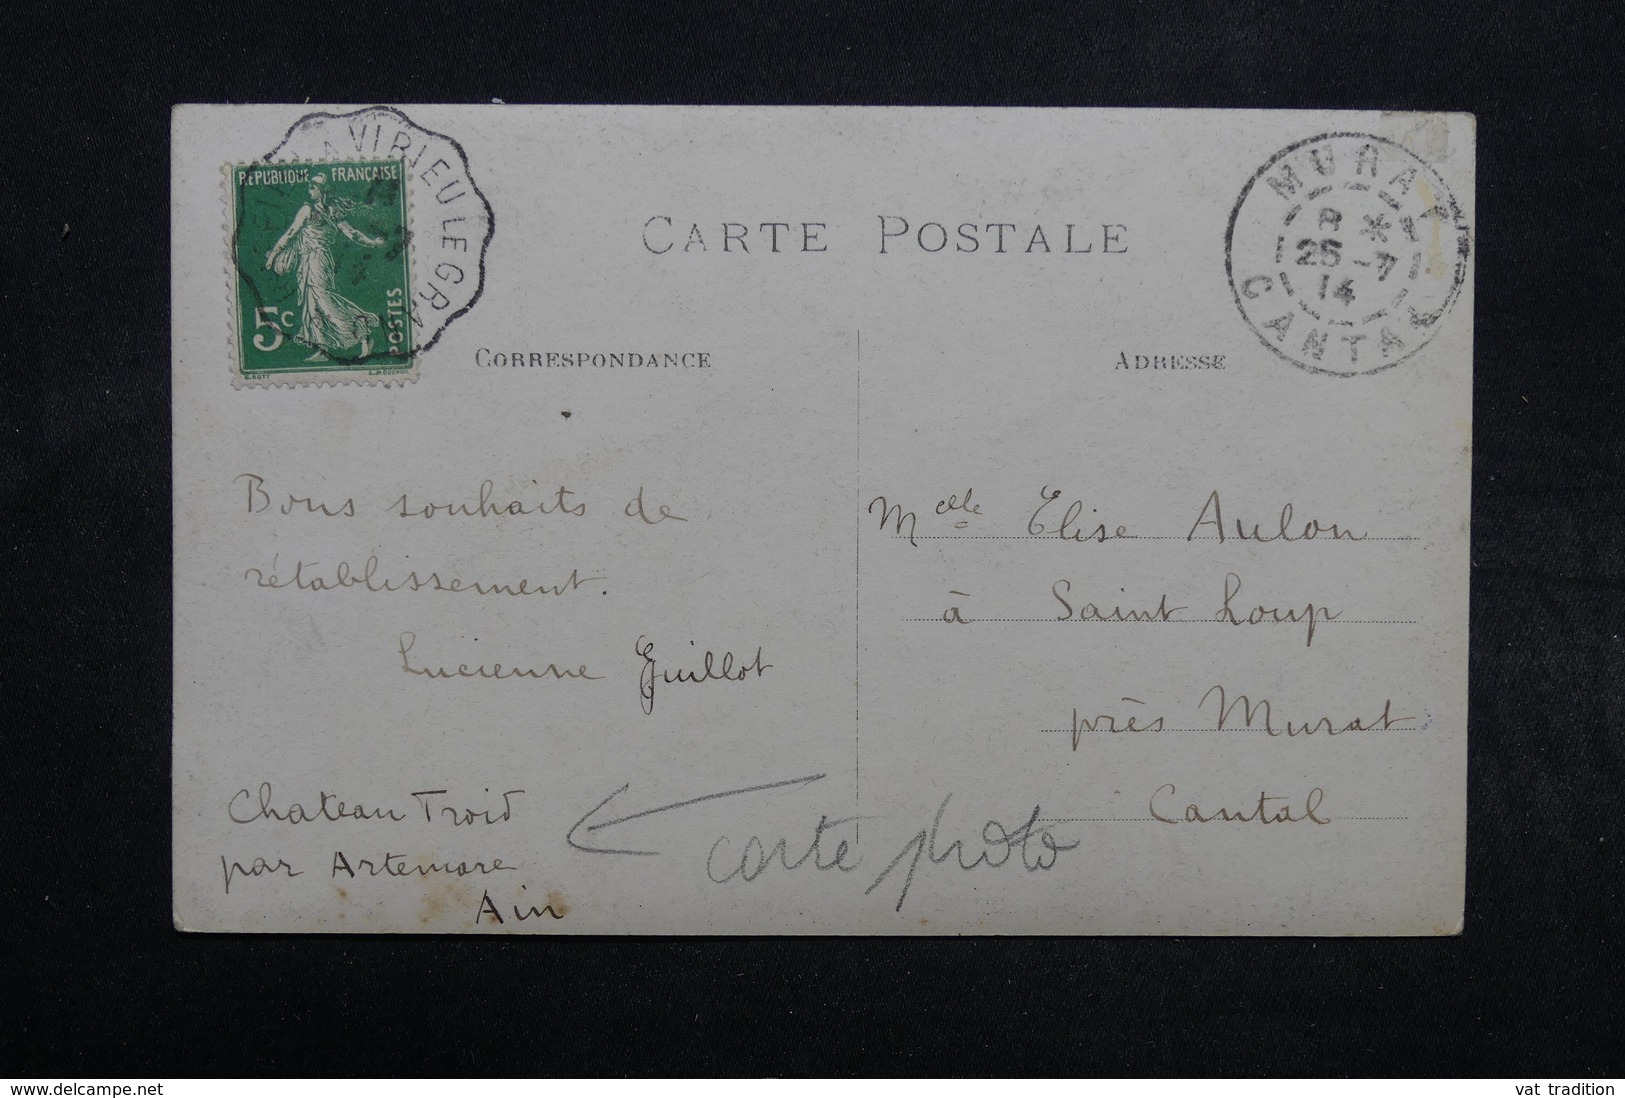 CARTE POSTALE
A VIRIEU LE GRAND
RÉPUBLIQUE FRANÇAISE
5c
POSTES
MURAT
8 *
25 -7
14
CANTAL
CORRESPONDANCE
ADRESSE
Bons souhaits de
rétablissement.
Lucienne Guillot
Chateau Froid
par Artemare
Ain
Melle Elise Aulon
à Saint Loup
près Murat
Cantal
carte photo
www.delcampe.net
vat tradition